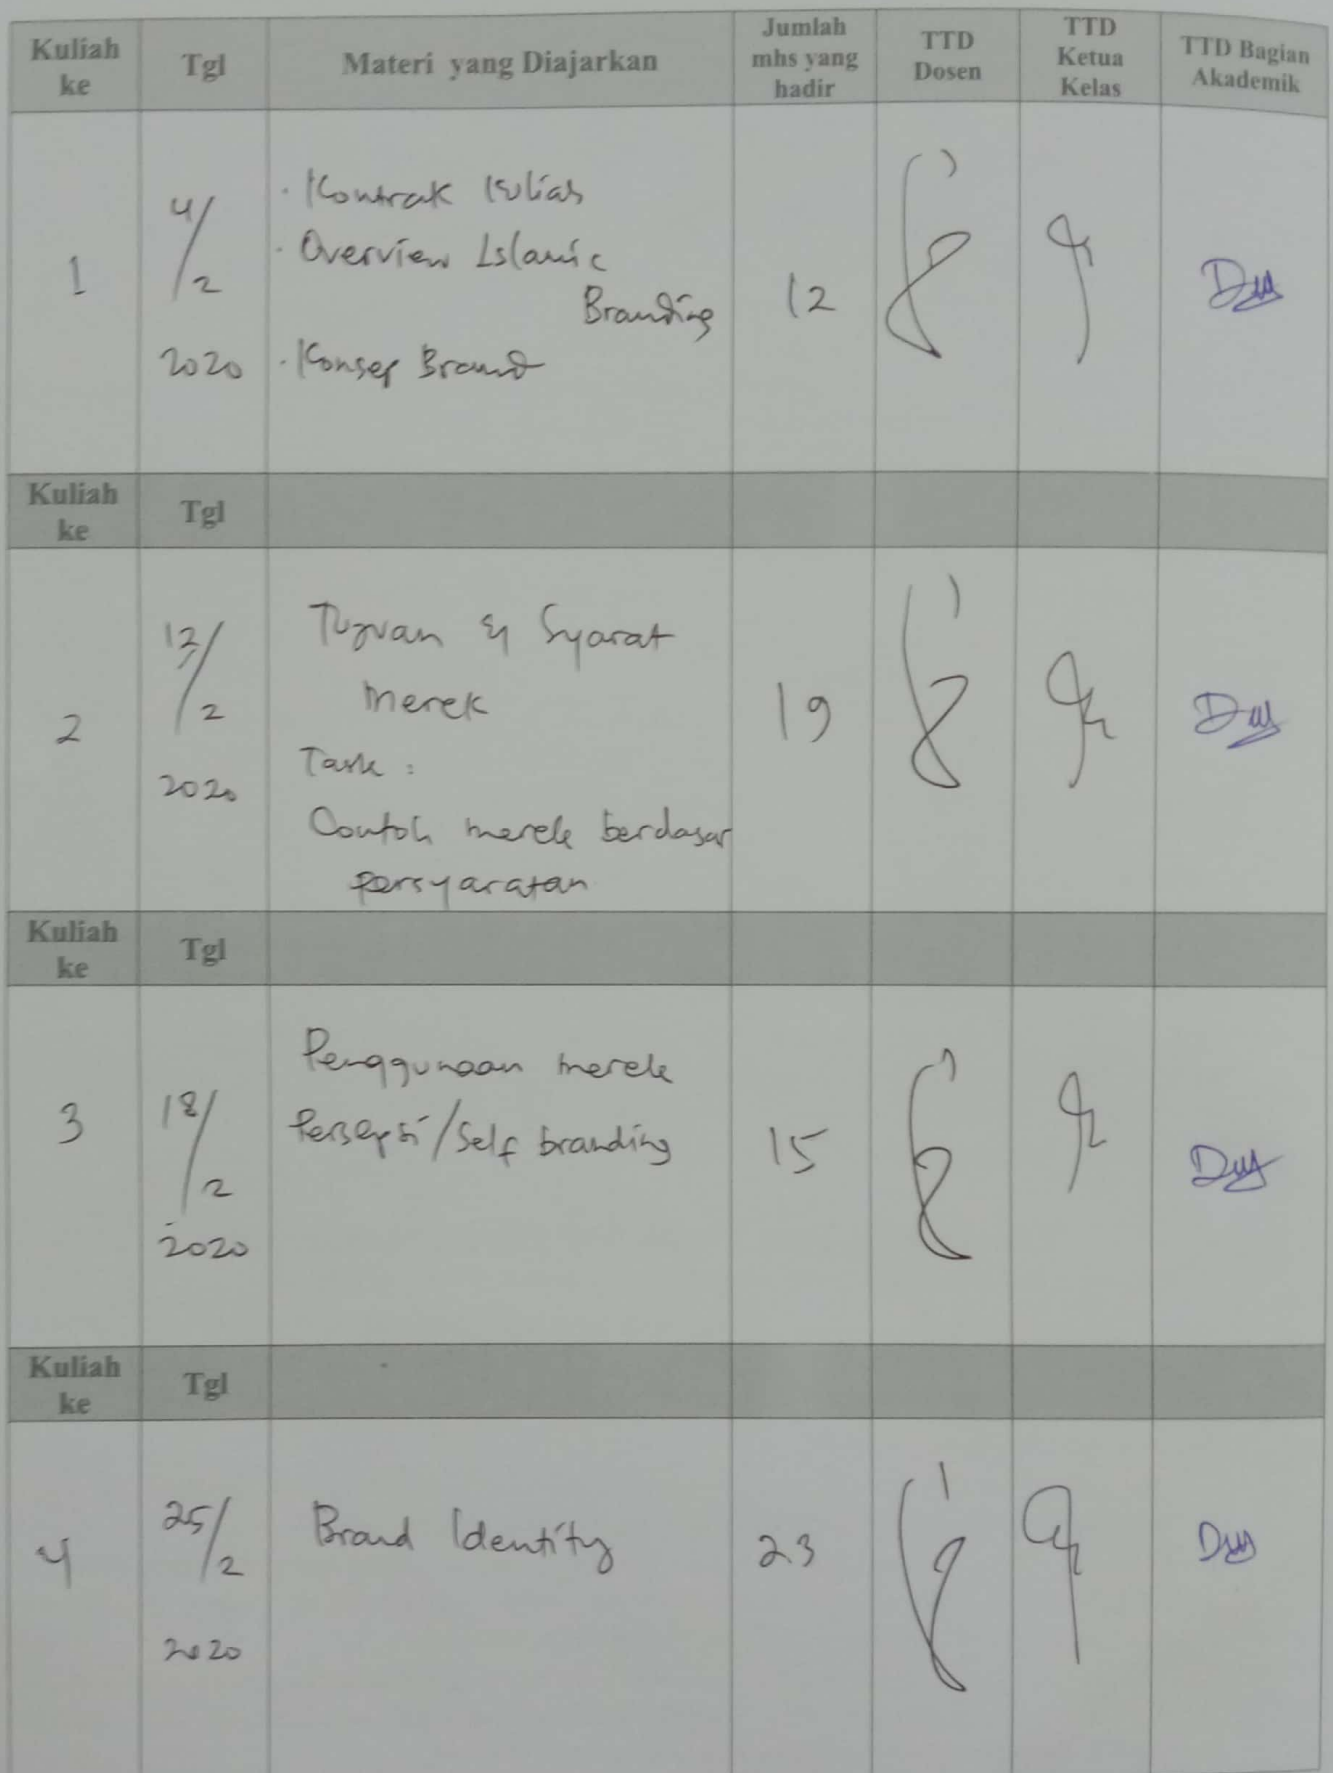 Kuliah ke Tgl Materi yang Diajarkan Jumlah mhs yang hadir TTD Dosen TTD Ketua Kelas TTD Bagian Akademik
1
4/2
2020
· Kontrak Kuliah
· Overview Islamic
Branding
· Konsep Brand
12
Kuliah ke Tgl
2
12/2
2020
Tujuan & Syarat
merek
Task :
Contoh merek berdasar
persyaratan
19
Kuliah ke Tgl
3
18/2
2020
Penggunaan merek
Persepsi/Self branding
15
Kuliah ke Tgl
4
25/2
2020
Brand Identity
23